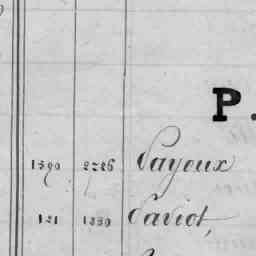 P.
1590 2726 Payeux
121 1330 Paviot,